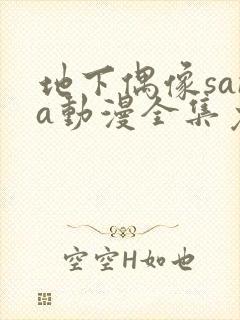 地下偶像sa
a動漫全集
空空H如也